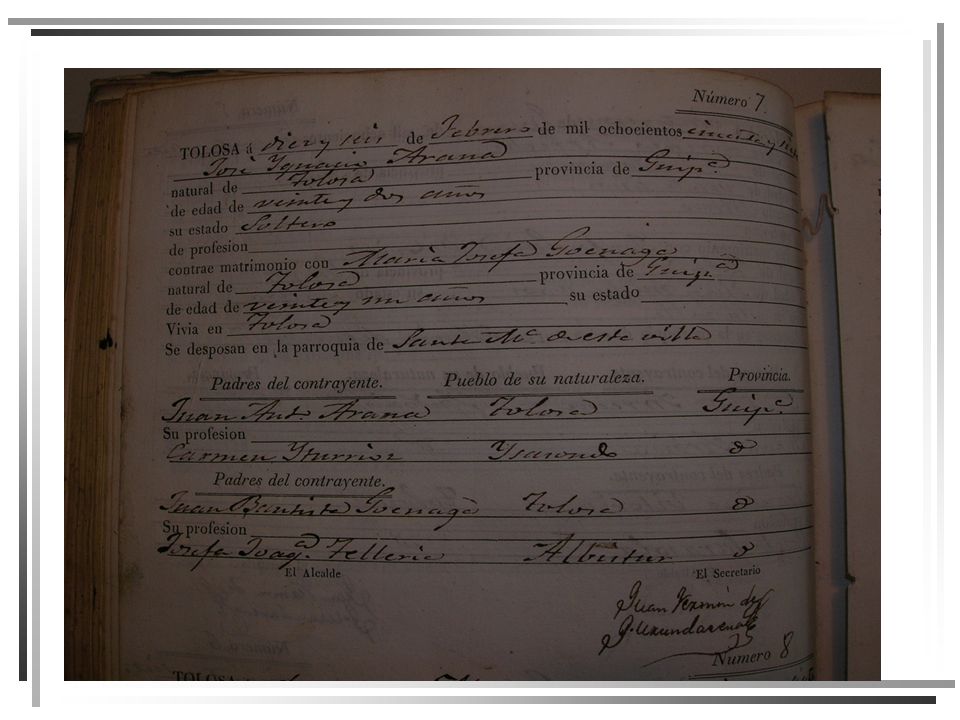 Número 7.
TOLOSA á diez y seis de Febrero de mil ochocientos cincuenta y
José Ygnacio Arana
natural de Tolosa provincia de Guipᵃ.
de edad de veinte y dos años
su estado Soltero
de profesion
contrae matrimonio con Maria Josefa Goenaga
natural de Tolosa provincia de Guipᵃ
de edad de veinte y un años su estado
Vivia en Tolosa
Se desposan en la parroquia de Santa Mᵃ de esta villa
Padres del contrayente. Pueblo de su naturaleza. Provincia.
Juan Antᵒ Arana Tolosa Guipᵃ.
Su profesion
Carmen Yturrioz Ysasondo d
Padres del contrayente.
Juan Bautista Goenaga Tolosa d
Su profesion
Josefa Joaqᵃ. Telleria Albistur d
El Alcalde El Secretario
Juan Fermin de
Numero 8
TOLOSA